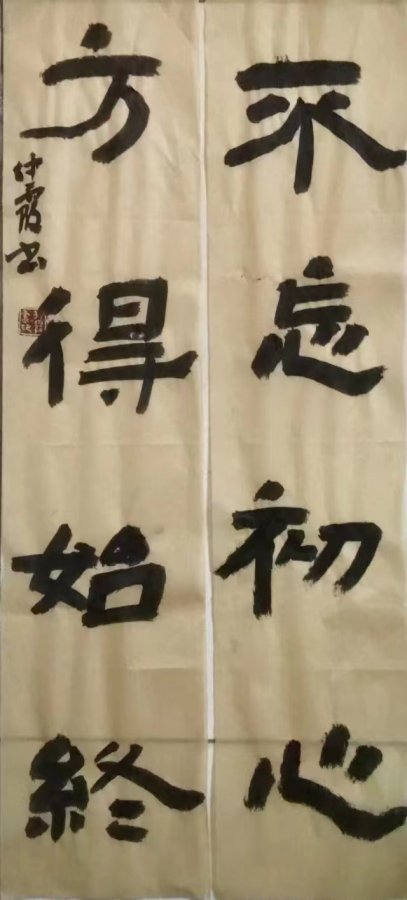 不忘初心
方得始終
仲霞书